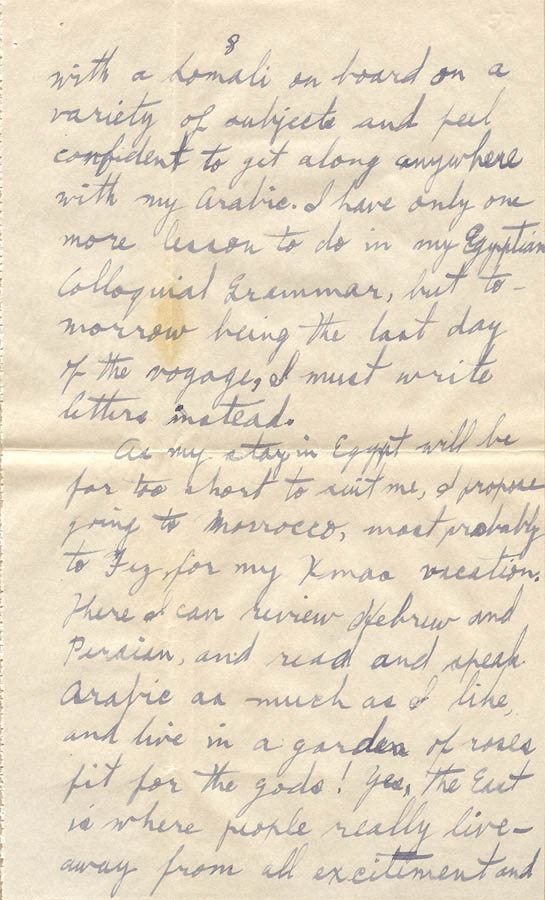 8
with a Somali on board on a
variety of subjects and feel
confident to get along anywhere
with my Arabic. I have only one
more lesson to do in my Egyptian
Colloquial Grammar, but to-
morrow being the last day
of the voyage, I must write
letters instead.
As my stay in Egypt will be
far too short to suit me, I propose
going to Morrocco, most probably
to Fez, for my Xmas vacation.
There I can review Hebrew and
Persian, and read and speak
Arabic as much as I like,
and live in a garden of roses
fit for the gods! Yes, the East
is where people really live—
away from all excitement and